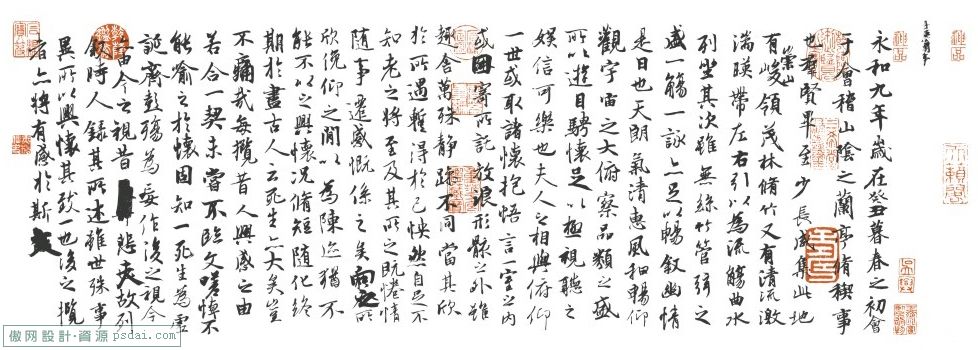 永和九年歲在癸丑暮春之初會
于會稽山陰之蘭亭脩禊事
也羣賢畢至少長咸集此地
有崇山峻領茂林脩竹又有清流激
湍暎帶左右引以為流觴曲水
列坐其次雖無絲竹管弦之
盛一觴一詠亦足以暢敘幽情
是日也天朗氣清惠風和暢仰
觀宇宙之大俯察品類之盛
所以遊目騁懷足以極視聽之
娛信可樂也夫人之相與俯仰
一世或取諸懷抱悟言一室之內
或因寄所託放浪形骸之外雖
趣舍萬殊靜躁不同當其欣
於所遇暫得於己怏然自足不
知老之將至及其所之既惓情
隨事遷感慨係之矣向之所
欣俛仰之閒以為陳迹猶不
能不以之興懷況脩短隨化終
期於盡古人云死生亦大矣豈
不痛哉每攬昔人興感之由
若合一契未嘗不臨文嗟悼不
能喻之於懷固知一死生為虛
誕齊彭殤為妄作後之視今
亦由今之視昔悲夫故列
敘時人錄其所述雖世殊事
異所以興懷其致一也後之攬
者亦將有感於斯文
傲网设计·資源 psdai.com